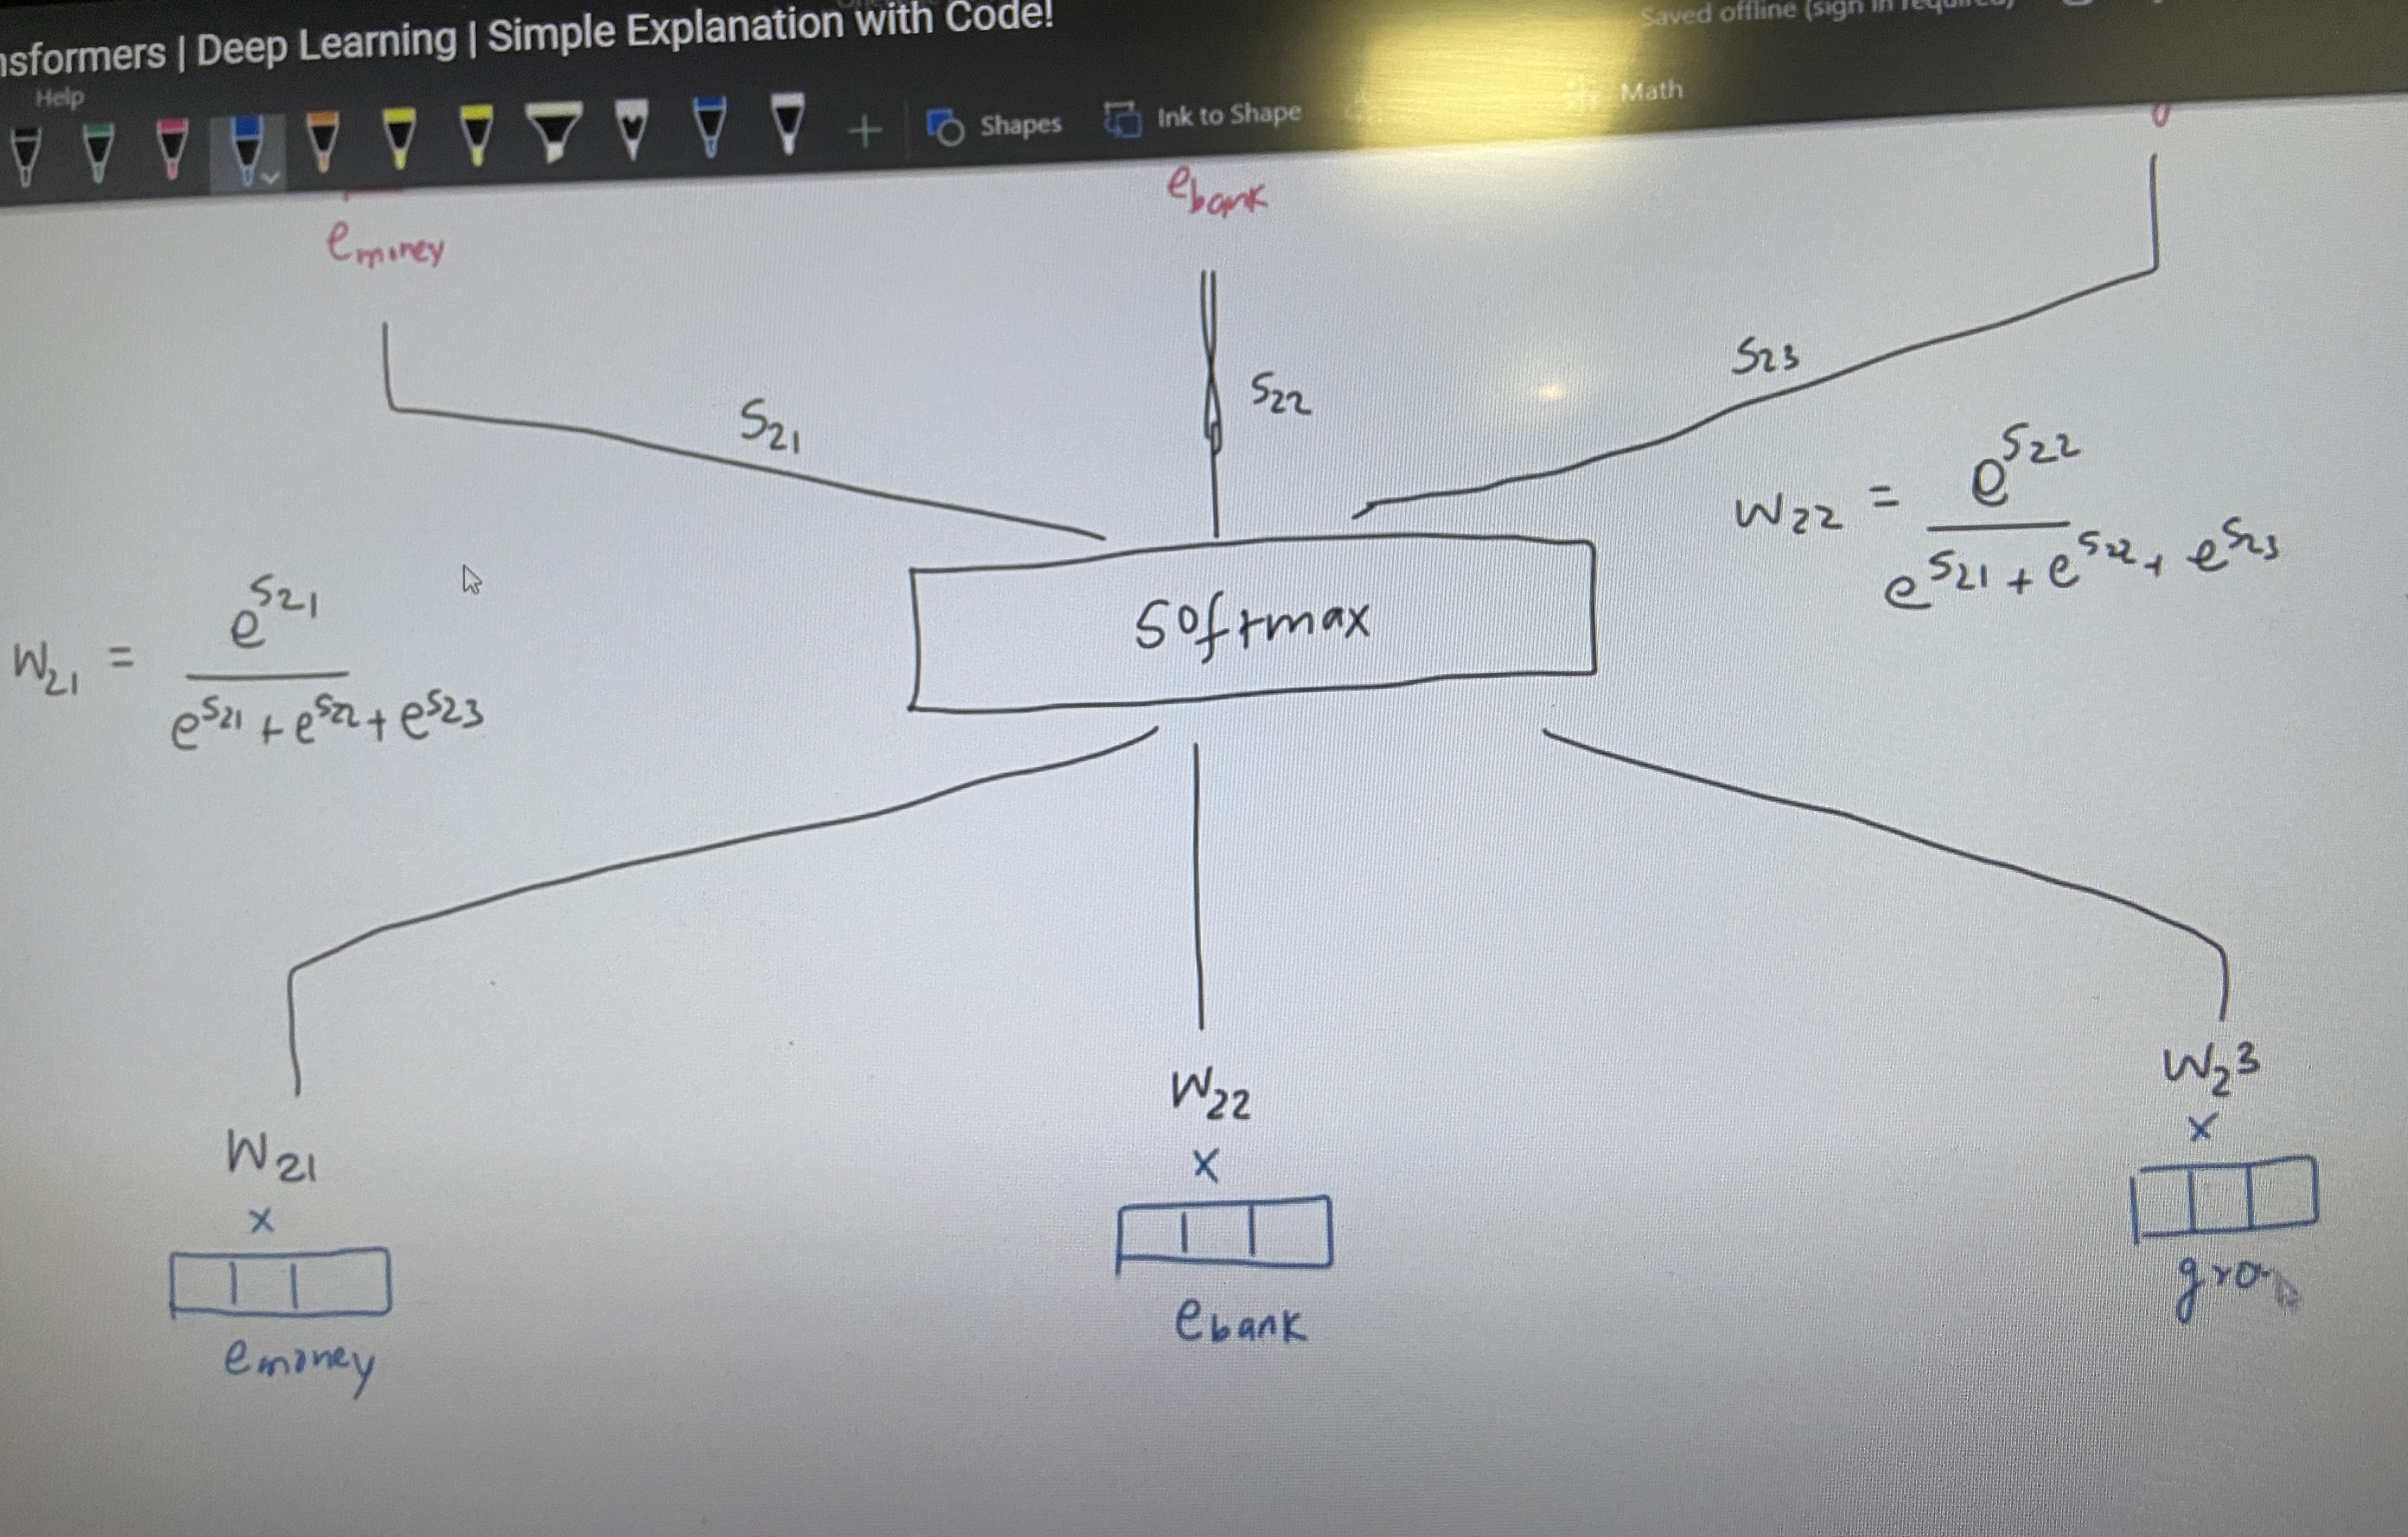 nsformers | Deep Learning | Simple Explanation with Code!
Saved offline (sign in required)
Help
Shapes
Ink to Shape
Math
e money
e bank
S21
S22
S23
W22 = e^S22 / e^S21 + e^S22 + e^S23
W21 = e^S21 / e^S21 + e^S22 + e^S23
Softmax
W21
W22
W23
x
x
x
e money
e bank
gro